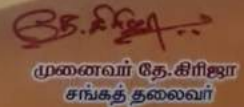 தே.கிரிஜா
முனைவர் தே.கிரிஜா
சங்கத் தலைவர்